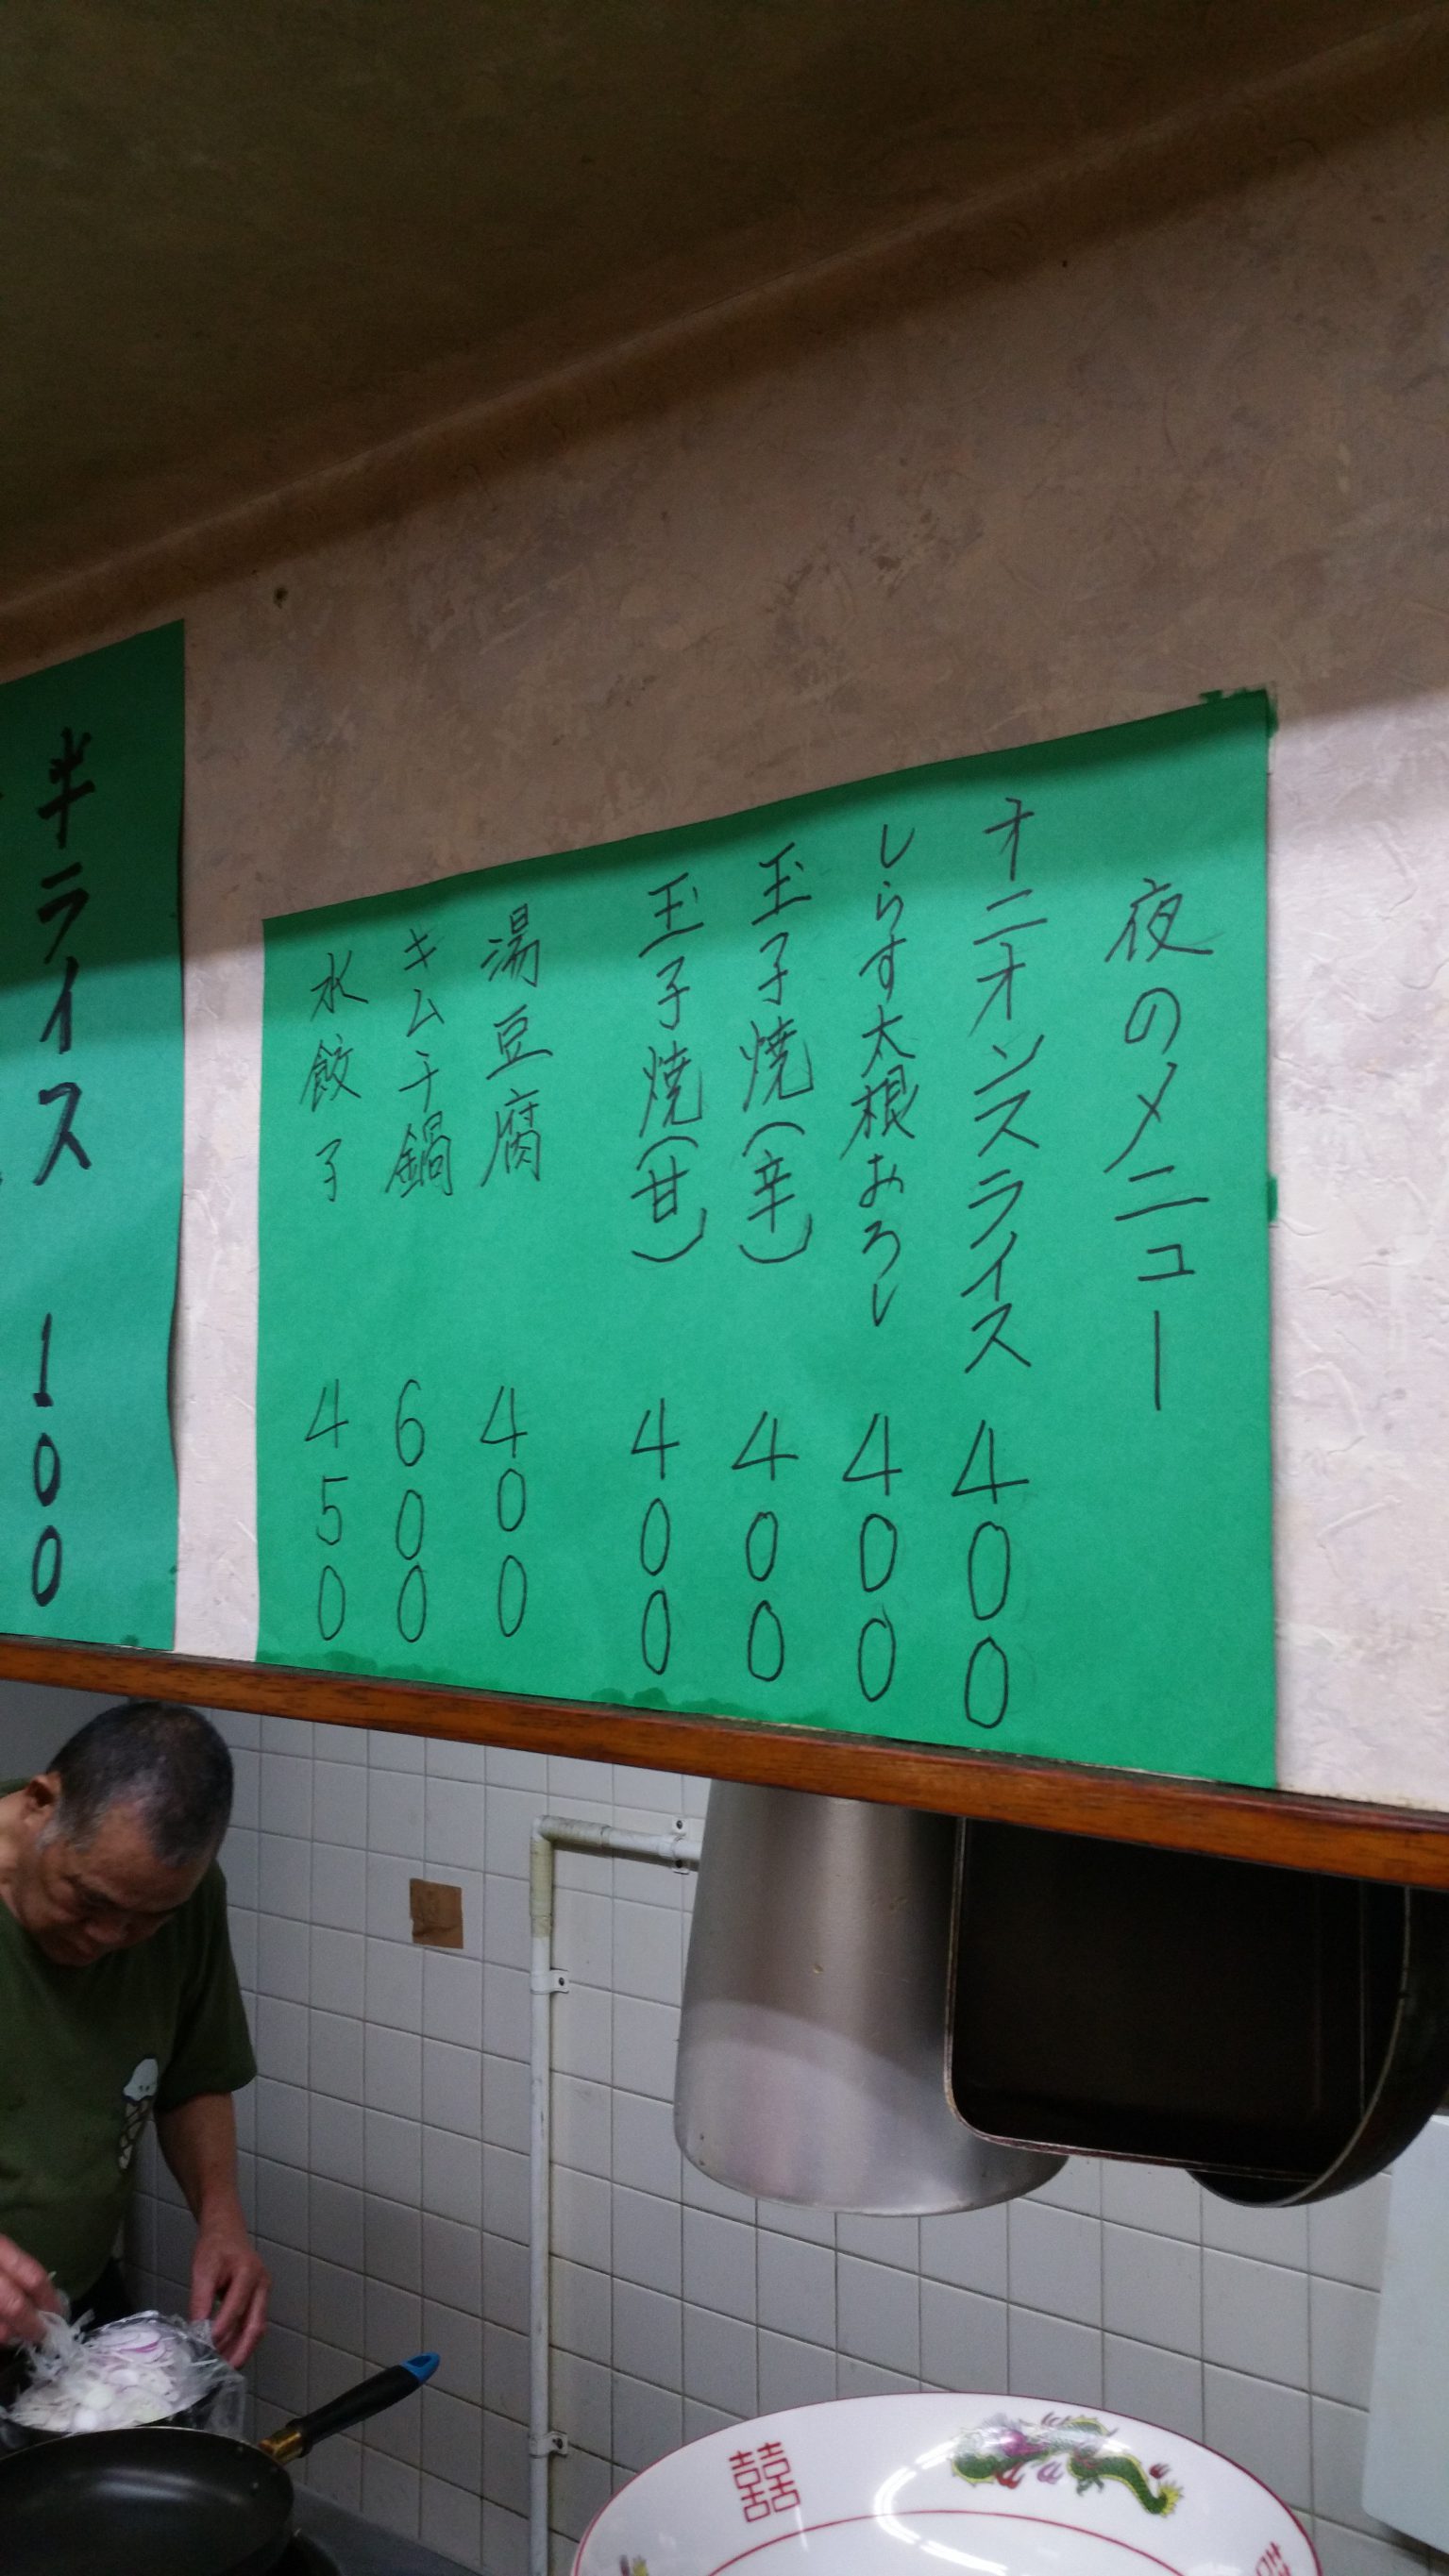 夜のメニュー
オニオンスライス 400
しらす大根おろし 400
玉子焼(辛) 400
玉子焼(甘) 400
湯豆腐 400
キムチ鍋 600
水餃子 450
半ライス 100
囍